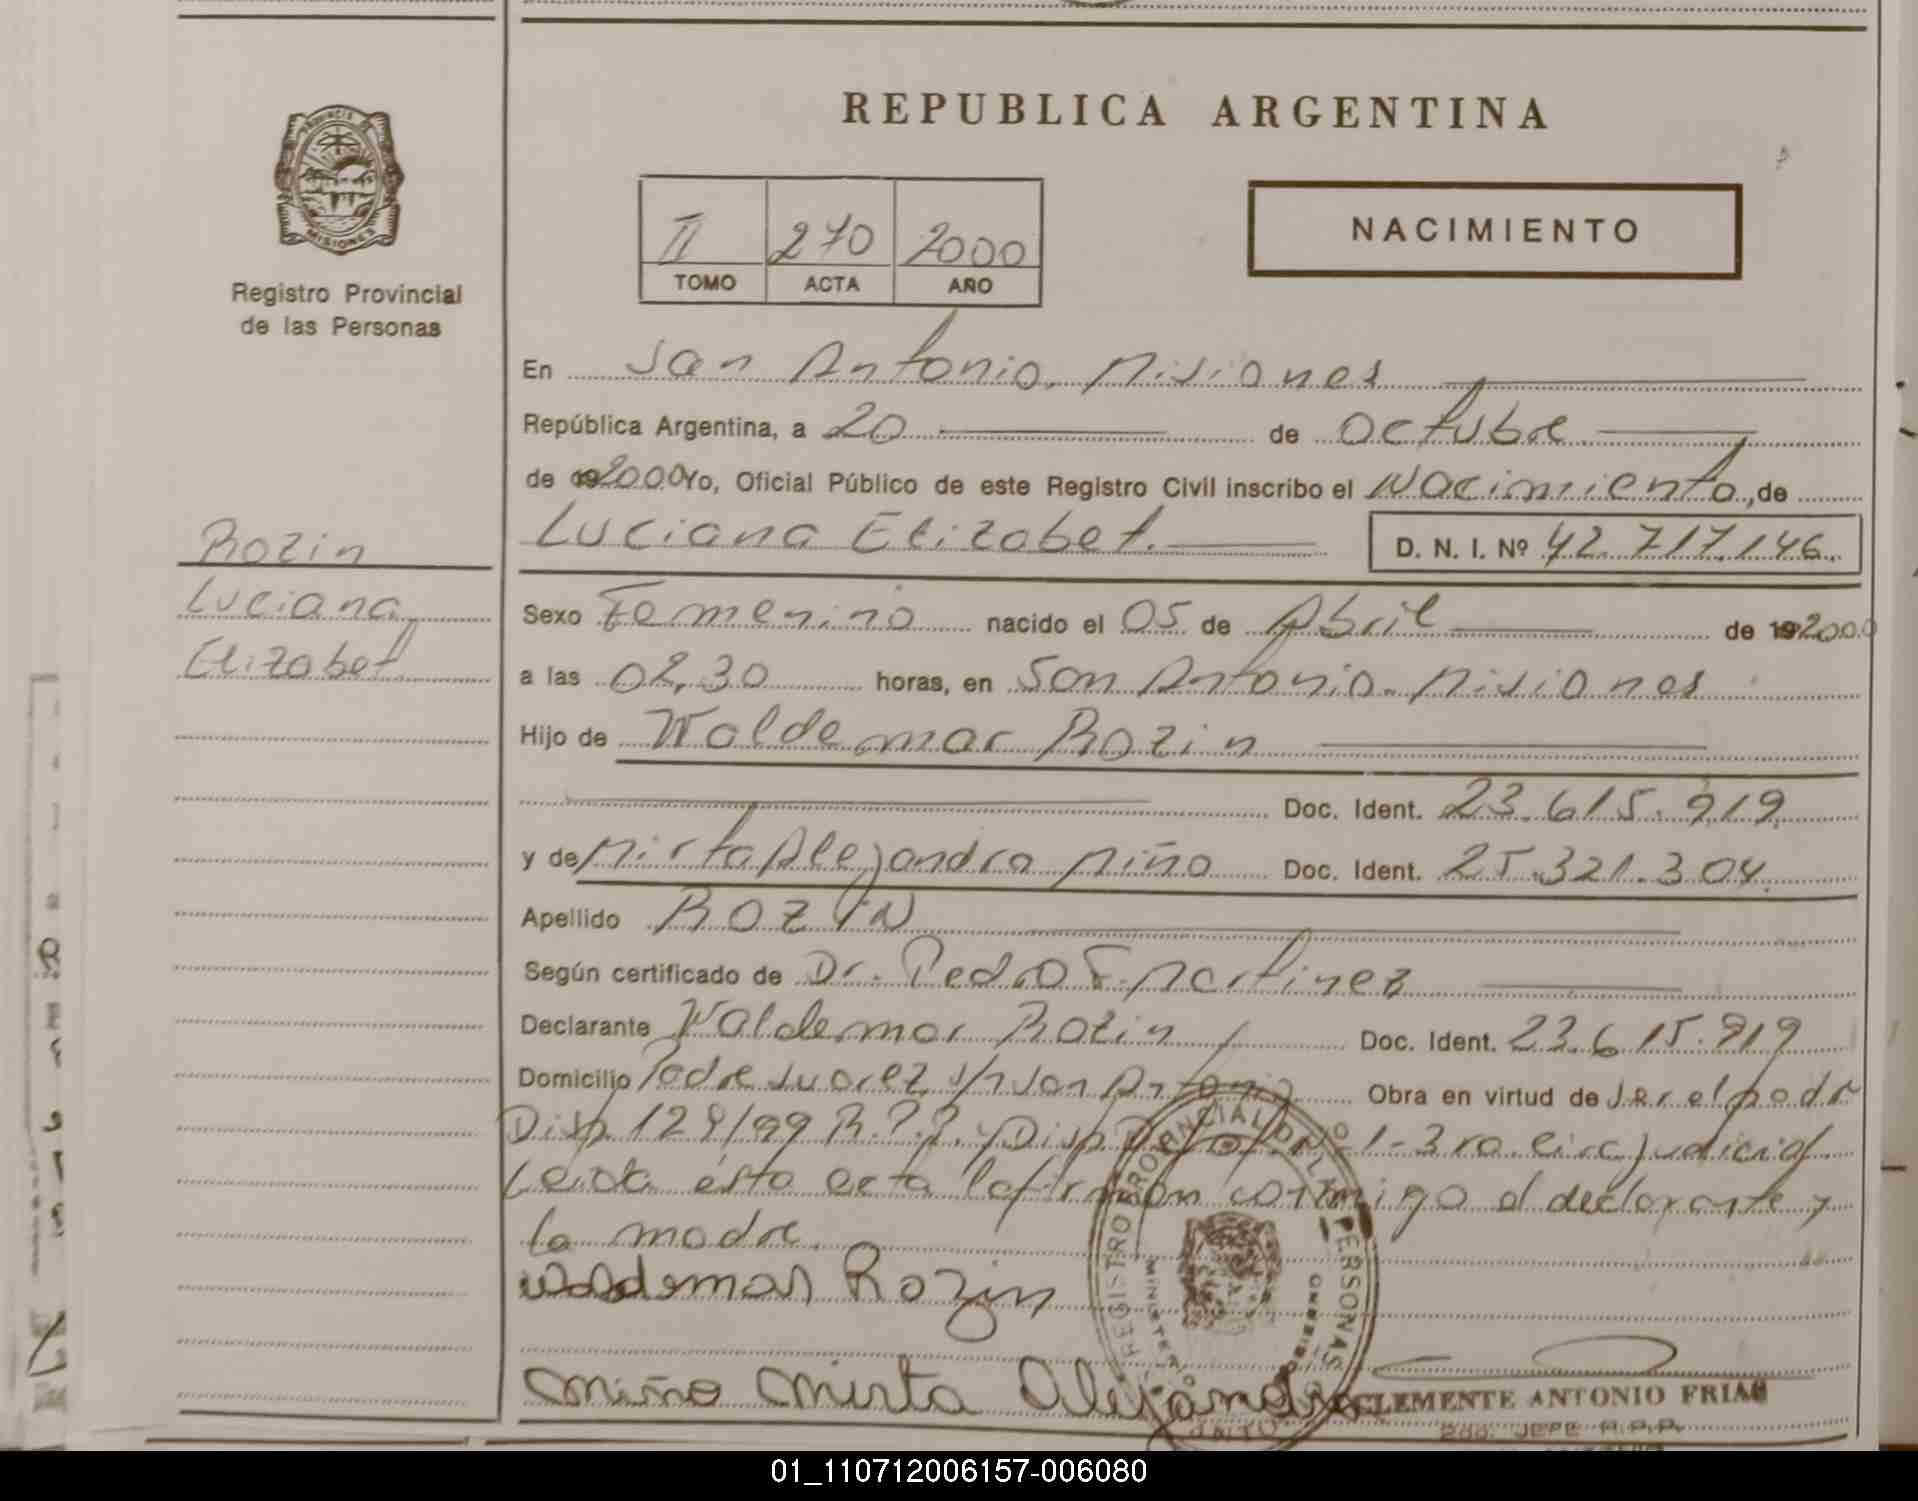 REPUBLICA ARGENTINA
PROVINCIA DE
MISIONES
Registro Provincial
de las Personas
II 270 2000
TOMO ACTA AÑO
NACIMIENTO
En San Antonio. Misiones
República Argentina, a 20 de Octubre
de 2000 Yo, Oficial Público de este Registro Civil inscribo el Nacimiento, de
Luciana Elizabet. D. N. I. Nº 42.717.146
Rozin
Luciana
Elizabet
Sexo Femenino nacido el 05 de Abril de 192000
a las 02,30 horas, en San Antonio. Misiones
Hijo de Waldemar Rozin
Doc. Ident. 23.615.919
y de Mirta Alejandra Miño Doc. Ident. 25.321.304
Apellido ROZIN
Según certificado de Dr. Pedro F. Martinez
Declarante Waldemar Rozin Doc. Ident. 23.615.919
Domicilio Padre Juarez s/n San Antonio Obra en virtud de ser el padre
Disp. 129/99 R.P.P. y Disp. 1-3ra. circ. judicial.
Leida esta acta la firman conmigo el declarante y
la madre.
Waldemar Rozin
Miño Mirta Alejandra
REGISTRO PROVINCIAL DE LAS PERSONAS
CLEMENTE ANTONIO FRIAS
2do. JEFE R.P.P.
01_110712006157-006080